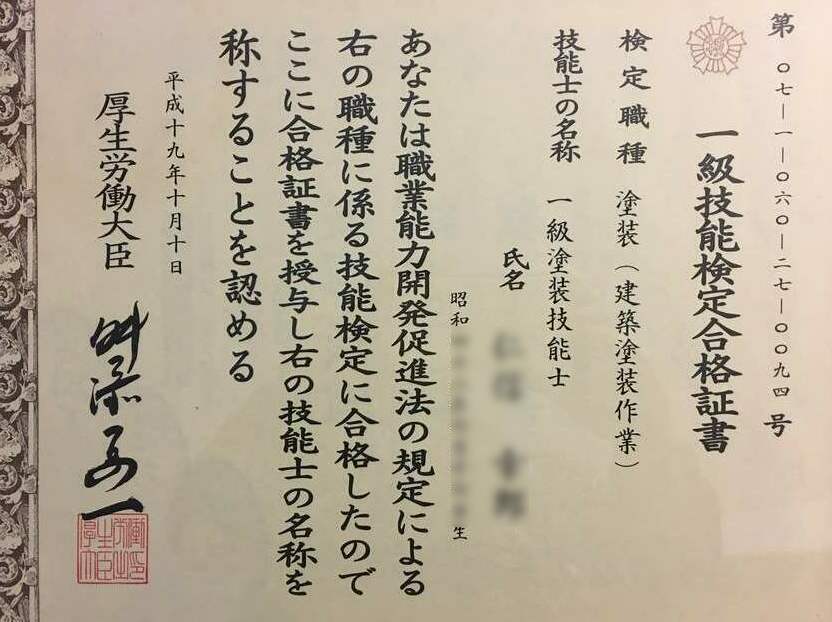 第〇七―一―〇六〇―二七―〇〇九四号
一級技能検定合格証書
検定職種 塗装（建築塗装作業）
技能士の名称 一級塗装技能士
氏名
昭和
生
あなたは職業能力開発促進法の規定による
右の職種に係る技能検定に合格したので
ここに合格証書を授与し右の技能士の名称を
称することを認める
平成十九年十月十日
厚生労働大臣 舛添要一